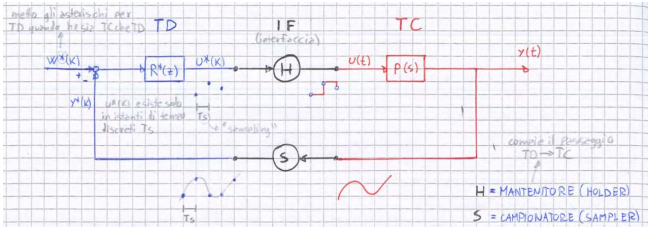 metto gli asterischi per
TD quando ho sia TC che TD
TD
IF
(interfaccia)
TC
W*(K)
+
-
R*(z)
U*(K)
H
U(t)
P(s)
y(t)
y*(K)
u*(K) esiste solo
in istanti di tempo
discreti Ts
Ts
"sampling"
S
Ts
compie il passaggio
TD → TC
H = MANTENITORE (HOLDER)
S = CAMPIONATORE (SAMPLER)